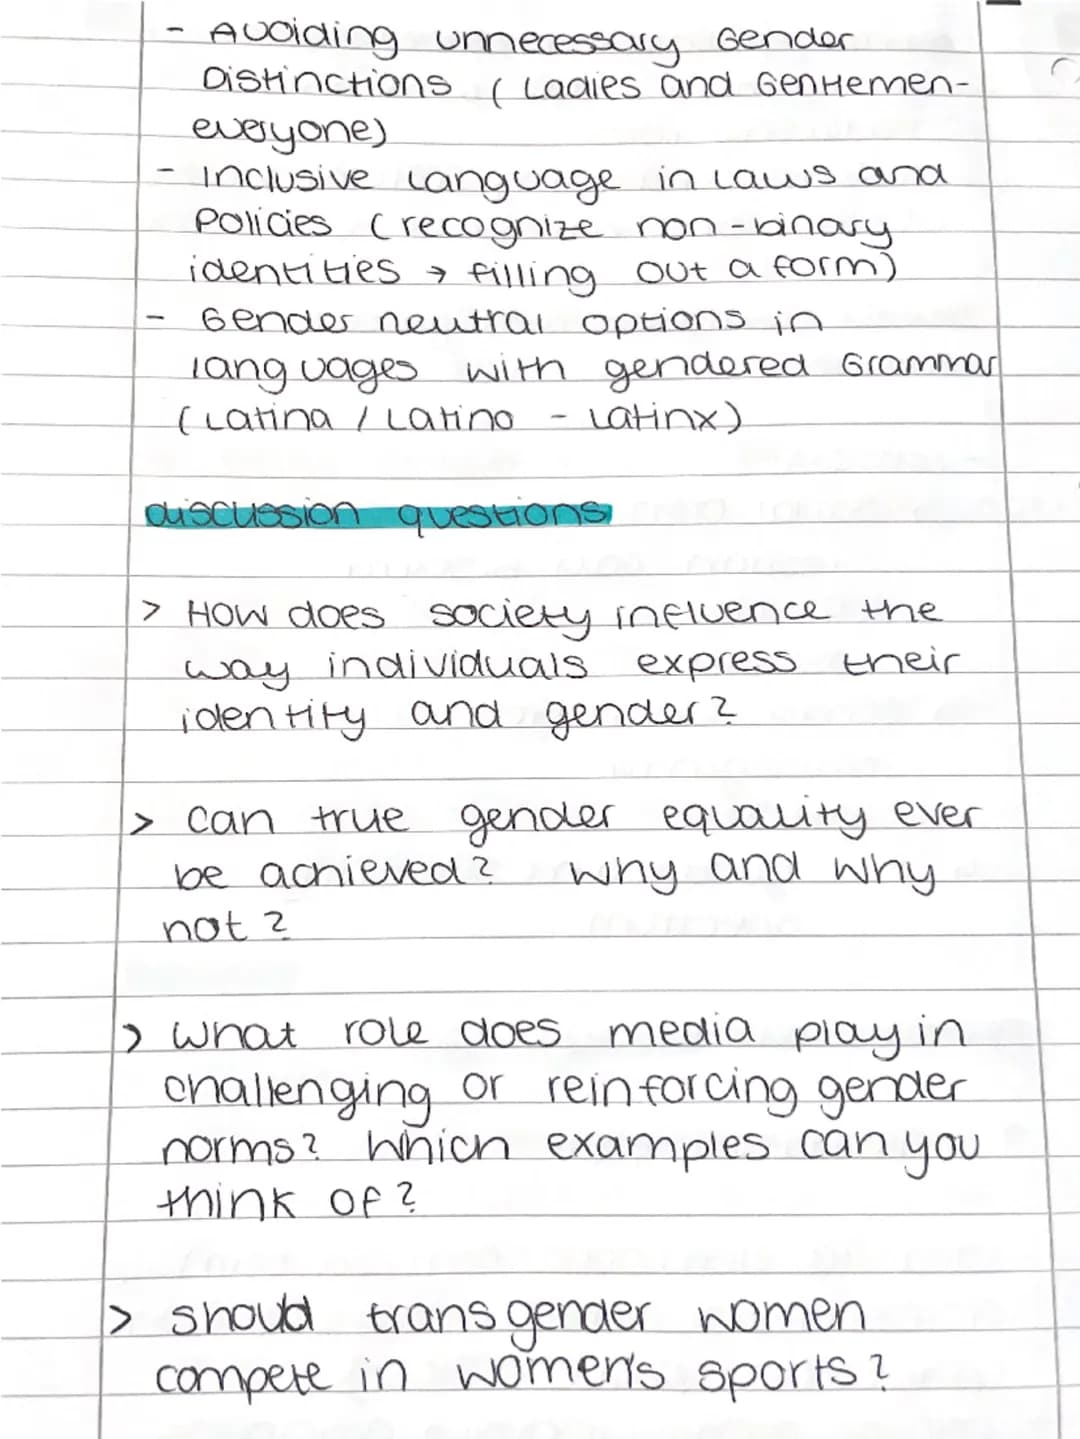 - Avoiding unnecessary Gender
Distinctions (Ladies and Gentlemen-
everyone)
- Inclusive Language in Laws and
Policies (recognize non-binary
identities → filling out a form)
- Gender neutral options in
languages with gendered Grammar
(Latina / Latino - Latinx)
discussion questions
> How does society influence the
way individuals express their
identity and gender?
> can true gender equality ever
be achieved? why and why
not?
> what role does media play in
challenging or reinforcing gender
norms? Which examples can you
think of?
> should transgender women
compete in women's sports?